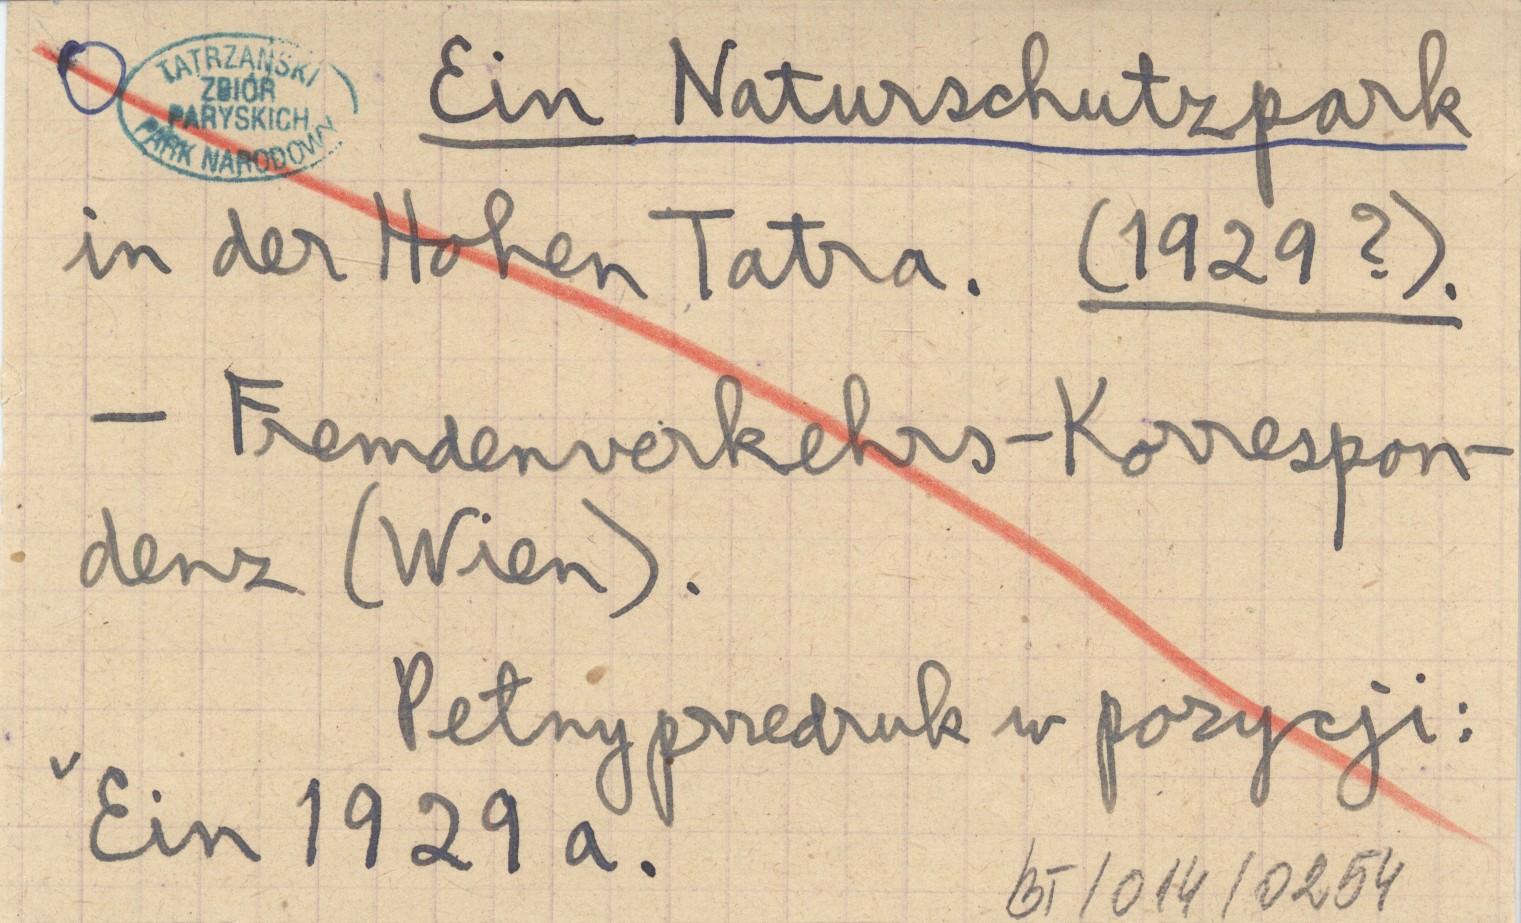 TATRZAŃSKI
ZBIÓR
PARYSKICH
PARK NARODOWY
Ein Naturschutzpark
in der Hohen Tatra. (1929?).
– Fremdenverkehrs-Korrespon-
denz (Wien).
Pełny przedruk w pozycji:
Ein 1929 a.
BT/014/0254